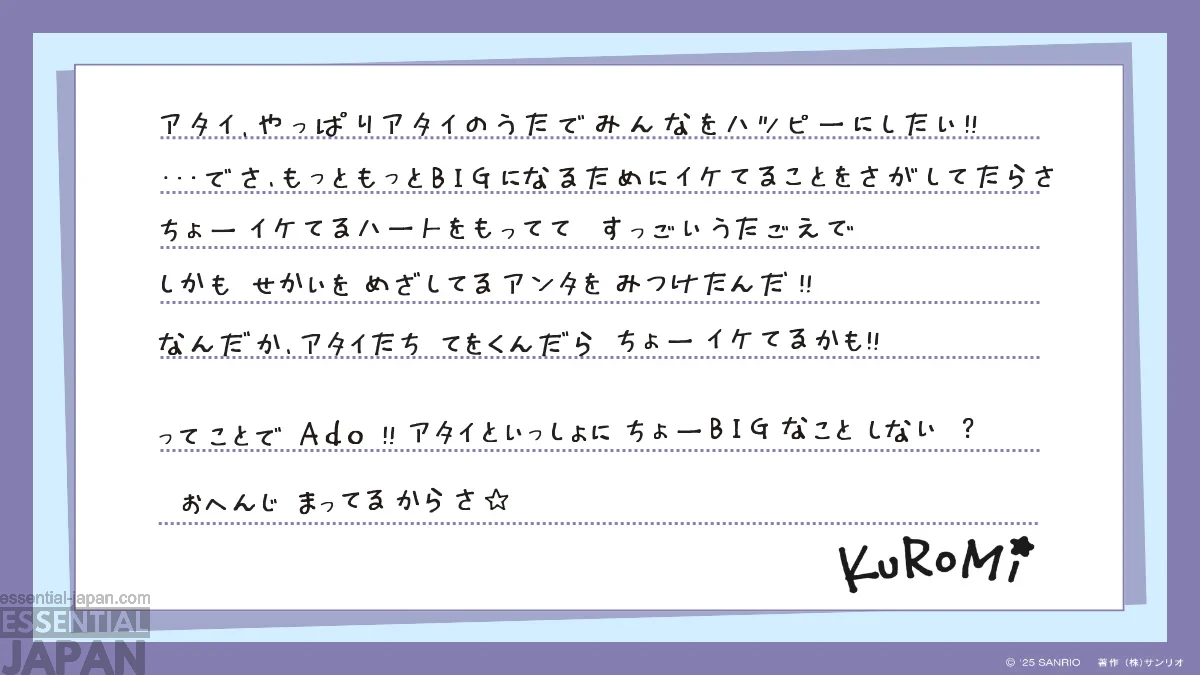 アタイ、やっぱりアタイのうたでみんなをハッピーにしたい!!
…でさ、もっともっとBIGになるためにイケてることをさがしてたらさ
ちょーイケてるハートをもってて すっごいうたごえで
しかも せかいを めざしてるアンタを みつけたんだ!!
なんだか、アタイたち てをくんだら ちょーイケてるかも!!
ってことで Ado !! アタイといっしょに ちょーBIGなこと しない ?
おへんじ まってるからさ☆
KUROMi
essential-japan.com
ESSENTIAL
JAPAN
© '25 SANRIO 著作(株)サンリオ